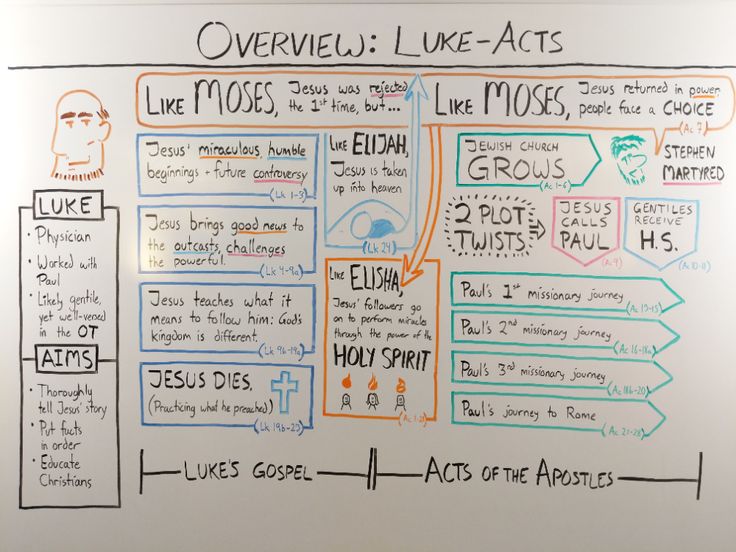 OVERVIEW: LUKE-ACTS
LIKE MOSES,
Jesus was rejected
the 1st time, but...
LIKE MOSES,
Jesus returned in power,
people face a CHOICE
(Ac 7)
LUKE
• Physician
• Worked with
Paul
• Likely gentile,
yet well-versed
in the OT
AIMS
• Thoroughly
tell Jesus' story
• Put facts
in order
• Educate
Christians
Jesus' miraculous, humble
beginnings + future controversy
(Lk 1-3)
Jesus brings good news to
the outcasts, challenges
the powerful.
(Lk 4-9a)
Jesus teaches what it
means to follow him: God's
kingdom is different.
(Lk 9b-19a)
JESUS DIES.
(Practicing what he preached)
(Lk 19b-23)
LIKE ELIJAH,
Jesus is taken
up into heaven
(Lk 24)
LIKE ELISHA,
Jesus' followers go
on to perform miracles
through the power of the
HOLY SPIRIT
JEWISH CHURCH
GROWS
(Ac 1-6)
STEPHEN
MARTYRED
2 PLOT
TWISTS
JESUS
CALLS
PAUL
(A. 9)
GENTILES
RECEIVE
H.S.
(Ac 10-11)
Paul's 1st missionary journey
(Ac 13-15)
Paul's 2nd missionary journey
(Ac 16-18a)
Paul's 3rd missionary journey
(Ac 18b-20)
Paul's journey to Rome
(Ac 21-28)
LUKE'S GOSPEL
ACTS OF THE APOSTLES